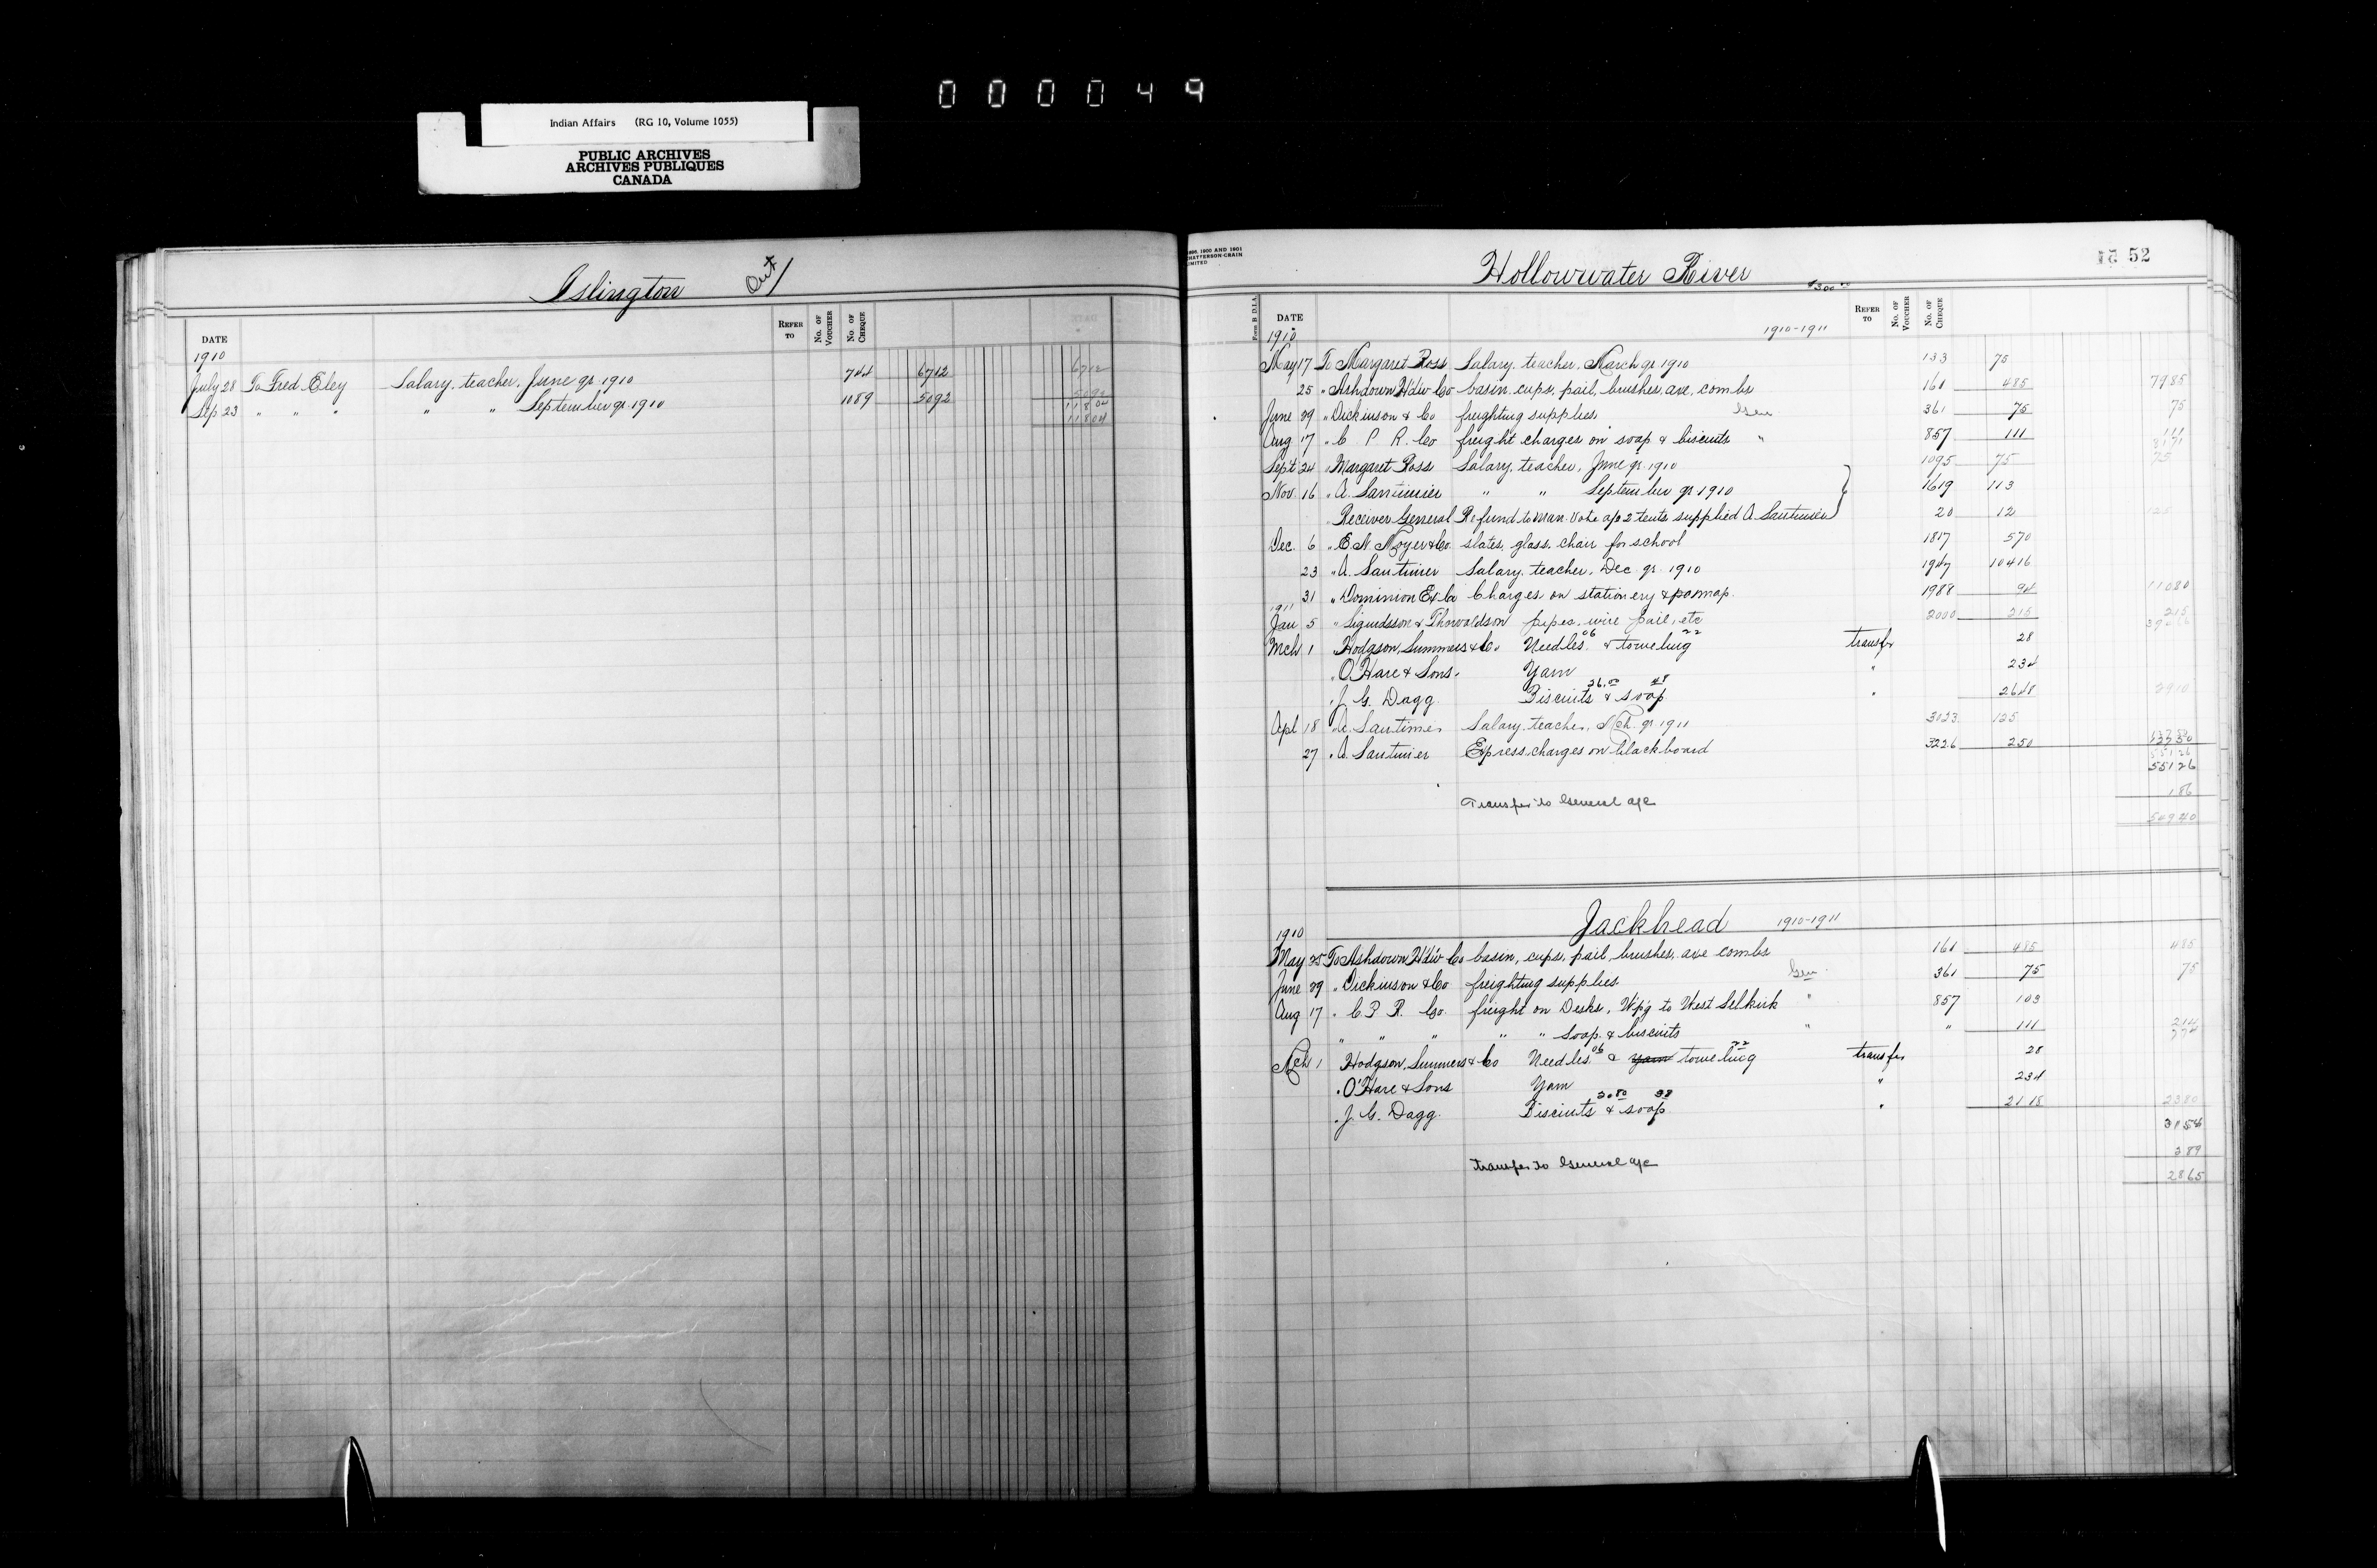 000049
Indian Affairs (RG 10, Volume 1055)
PUBLIC ARCHIVES
ARCHIVES PUBLIQUES
CANADA
Islington Ont
DATE REFER TO No. OF VOUCHER No. OF CHEQUE
1910
July 28 To Fred Eley Salary, teacher, June qr 1910 744 6712 6712
Sep 23 " " " " " September qr. 1910 1089 5092 5092
11804
11804
HATTERSON-CRAIN
LIMITED
Hollowwater River 52
$300.00
Form B D.I.A. DATE REFER TO No. OF VOUCHER No. OF CHEQUE
1910 1910-1911
May 17 To Margaret Ross Salary, teacher, March qr 1910 133 75
25 " Ashdown H'dw Co basin, cups, pail, brushes, axe, combs 161 485 7985
June 29 " Dickinson & Co freighting supplies. Gen 361 75 75
Aug 17 " C P R. Co freight charges on soap & biscuits " 857 111 111
Sept 24 " Margaret Ross Salary, teacher, June qr. 1910 1095 75 75
Nov. 16 " A. Santimier " " September qr 1910 1619 113
Receiver General Refund to Man. Vote a/c 2 tents supplied A Santimier 20 12 125
Dec. 6 " E. N. Moyer & Co. slates, glass, chair for school 1817 570
23 " A. Santimier Salary, teacher, Dec. qr. 1910 1947 10416
31 " Dominion Ex Co Charges on stationery & map. 1988 94 11080
1911
Jan 5 " Sigurdsson & Thorvaldson pipes, wire pail, etc 2000 215 215
Mch 1 " Hodgson, Summers & Co. Needles 06 & toweling 22 transfr 28
" O'Hare & Sons. Yarn " 234
" J. G. Dagg. Biscuits 26.00 & soap 48 " 2648 2910
Apl 18 " A. Santimer Salary, teacher, Mch. qr 1911 3023 125
27 " A. Santimier Express charges on blackboard 3226 250 12750
55126
55126
Transfer to General a/c 186
54940
Jackhead 1910-1911
1910
May 25 To Ashdown H'd'w Co basin, cups, pail, brushes, axe combs 161 485 485
June 29 " Dickinson & Co freighting supplies. Gen 361 75 75
Aug 17 " C. P. R. Co. freight on Desks, W'p'g to West Selkirk " 857 103
" " " " " Soap & biscuits " " 111 214
774
Mch 1 Hodgson, Summers & Co Needles 06 & yarn toweling 22 transfr 28
" O'Hare & Sons Yarn " 234
" J. G. Dagg. Biscuits 20.80 & soap 38 " 2118 2380
3154
Transfer to General a/c 289
2865